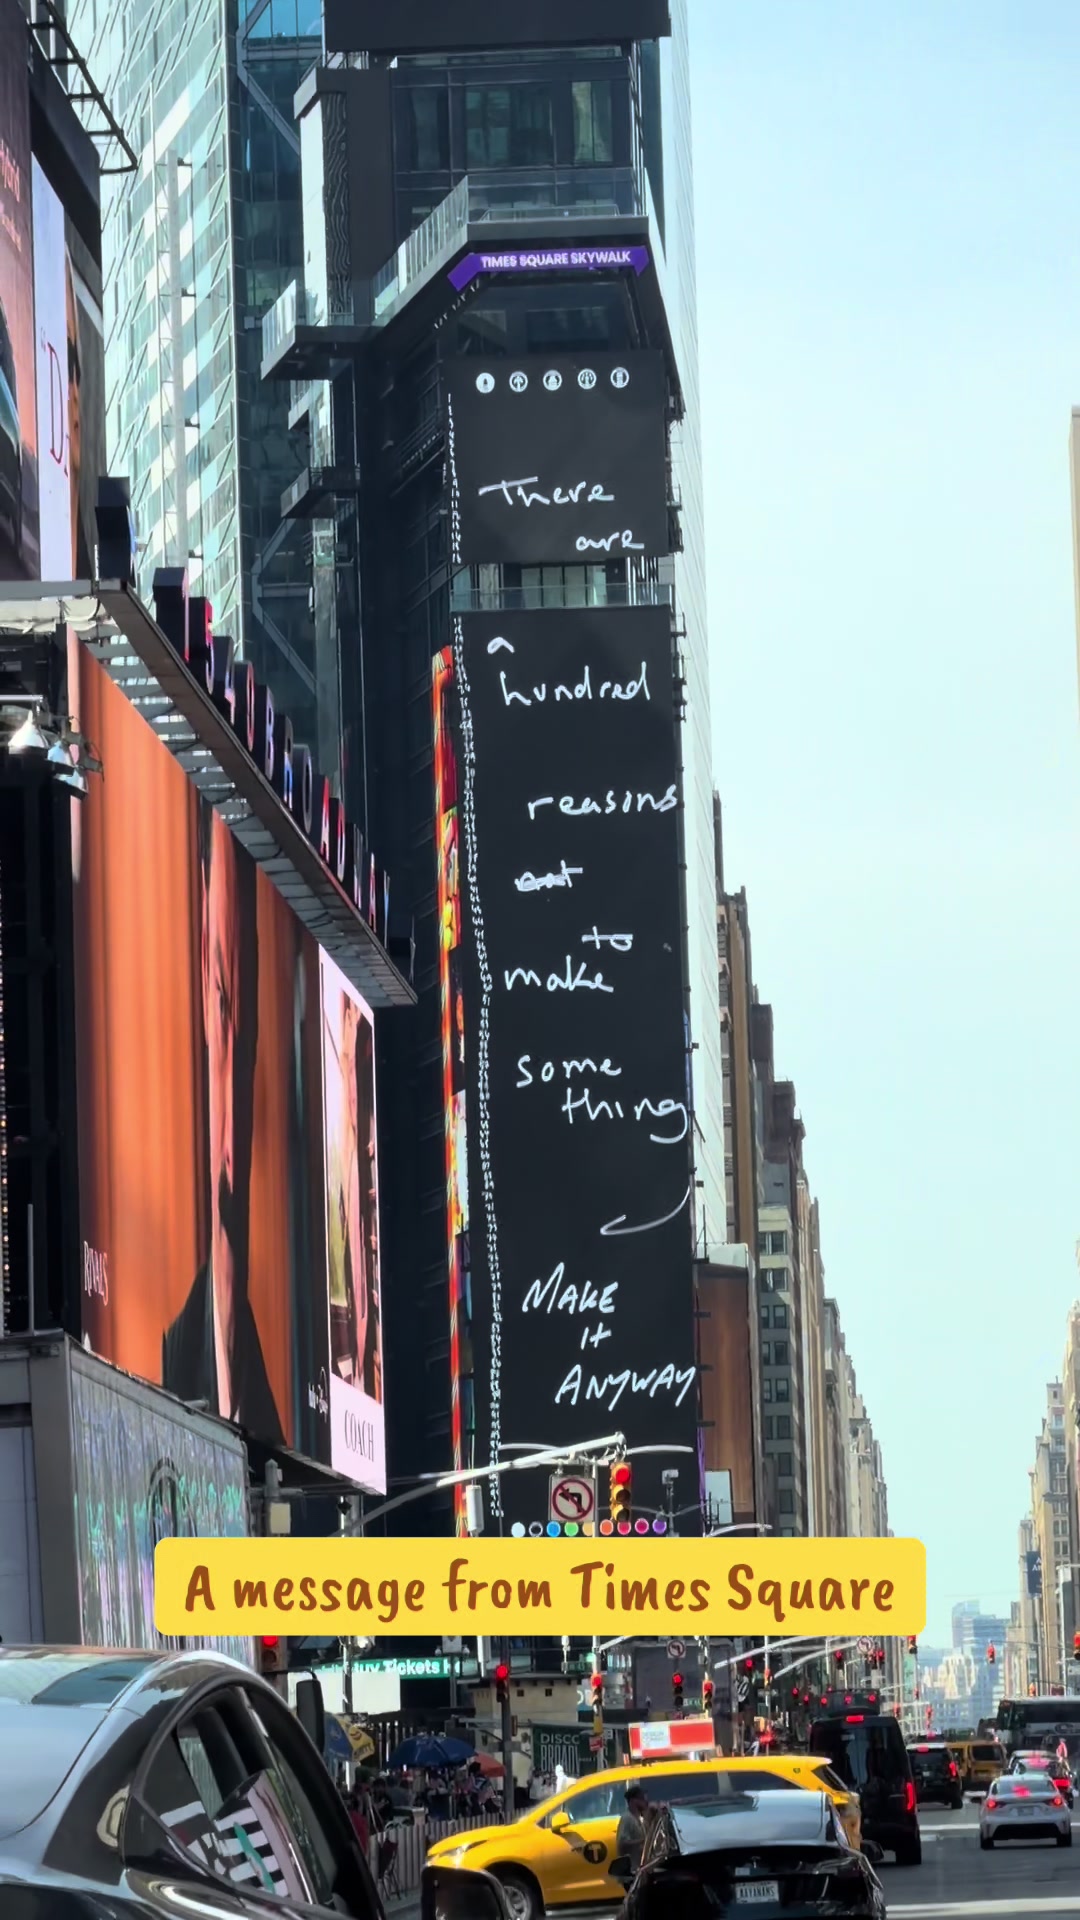 TIMES SQUARE SKYWALK
There
are
a
hundred
reasons
not
to
make
some
thing
MAKE
it
ANYWAY
1540 BROADWAY
RIVALS
COACH
A message from Times Square
Buy Tickets
DISC
BROADW
T